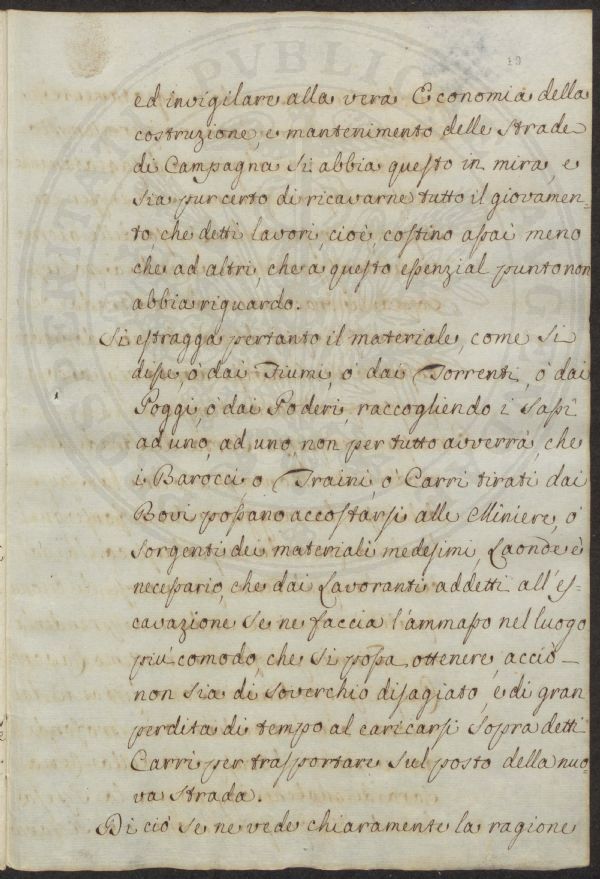 ed invigilare alla vera Economia della
costruzione, e mantenimento delle Strade
di Campagna si abbia questo in mira, e
sia pur certo di ricavarne tutto il giovamen-
to, che detti lavori cioè, costino assai meno
che ad altri, che a questo essenzial punto non
abbia riguardo.
Si estragga pertanto il materiale, come si
disse, ò dai Fiumi, ò dai Torrenti, ò dai
Poggi, ò dai Poderi, raccogliendo i sassi
ad uno, ad uno, non per tutto avverrà, che
i Barocci o Traini, ò Carri tirati dai
Bovi possano accostarsi alle Miniere, ò
sorgenti dei materiali medesimi, Laonde è
necessario, che dai Lavoranti addetti all'es-
cavazione se ne faccia l'ammasso nel luogo
più comodo, che si possa ottenere, acciò
non sia di soverchio disagiato, e di gran
perdita di tempo al caricarsi sopra detti
Carri per trasportare sul posto della nuo-
va Strada.
Di ciò se ne vede chiaramente la ragione